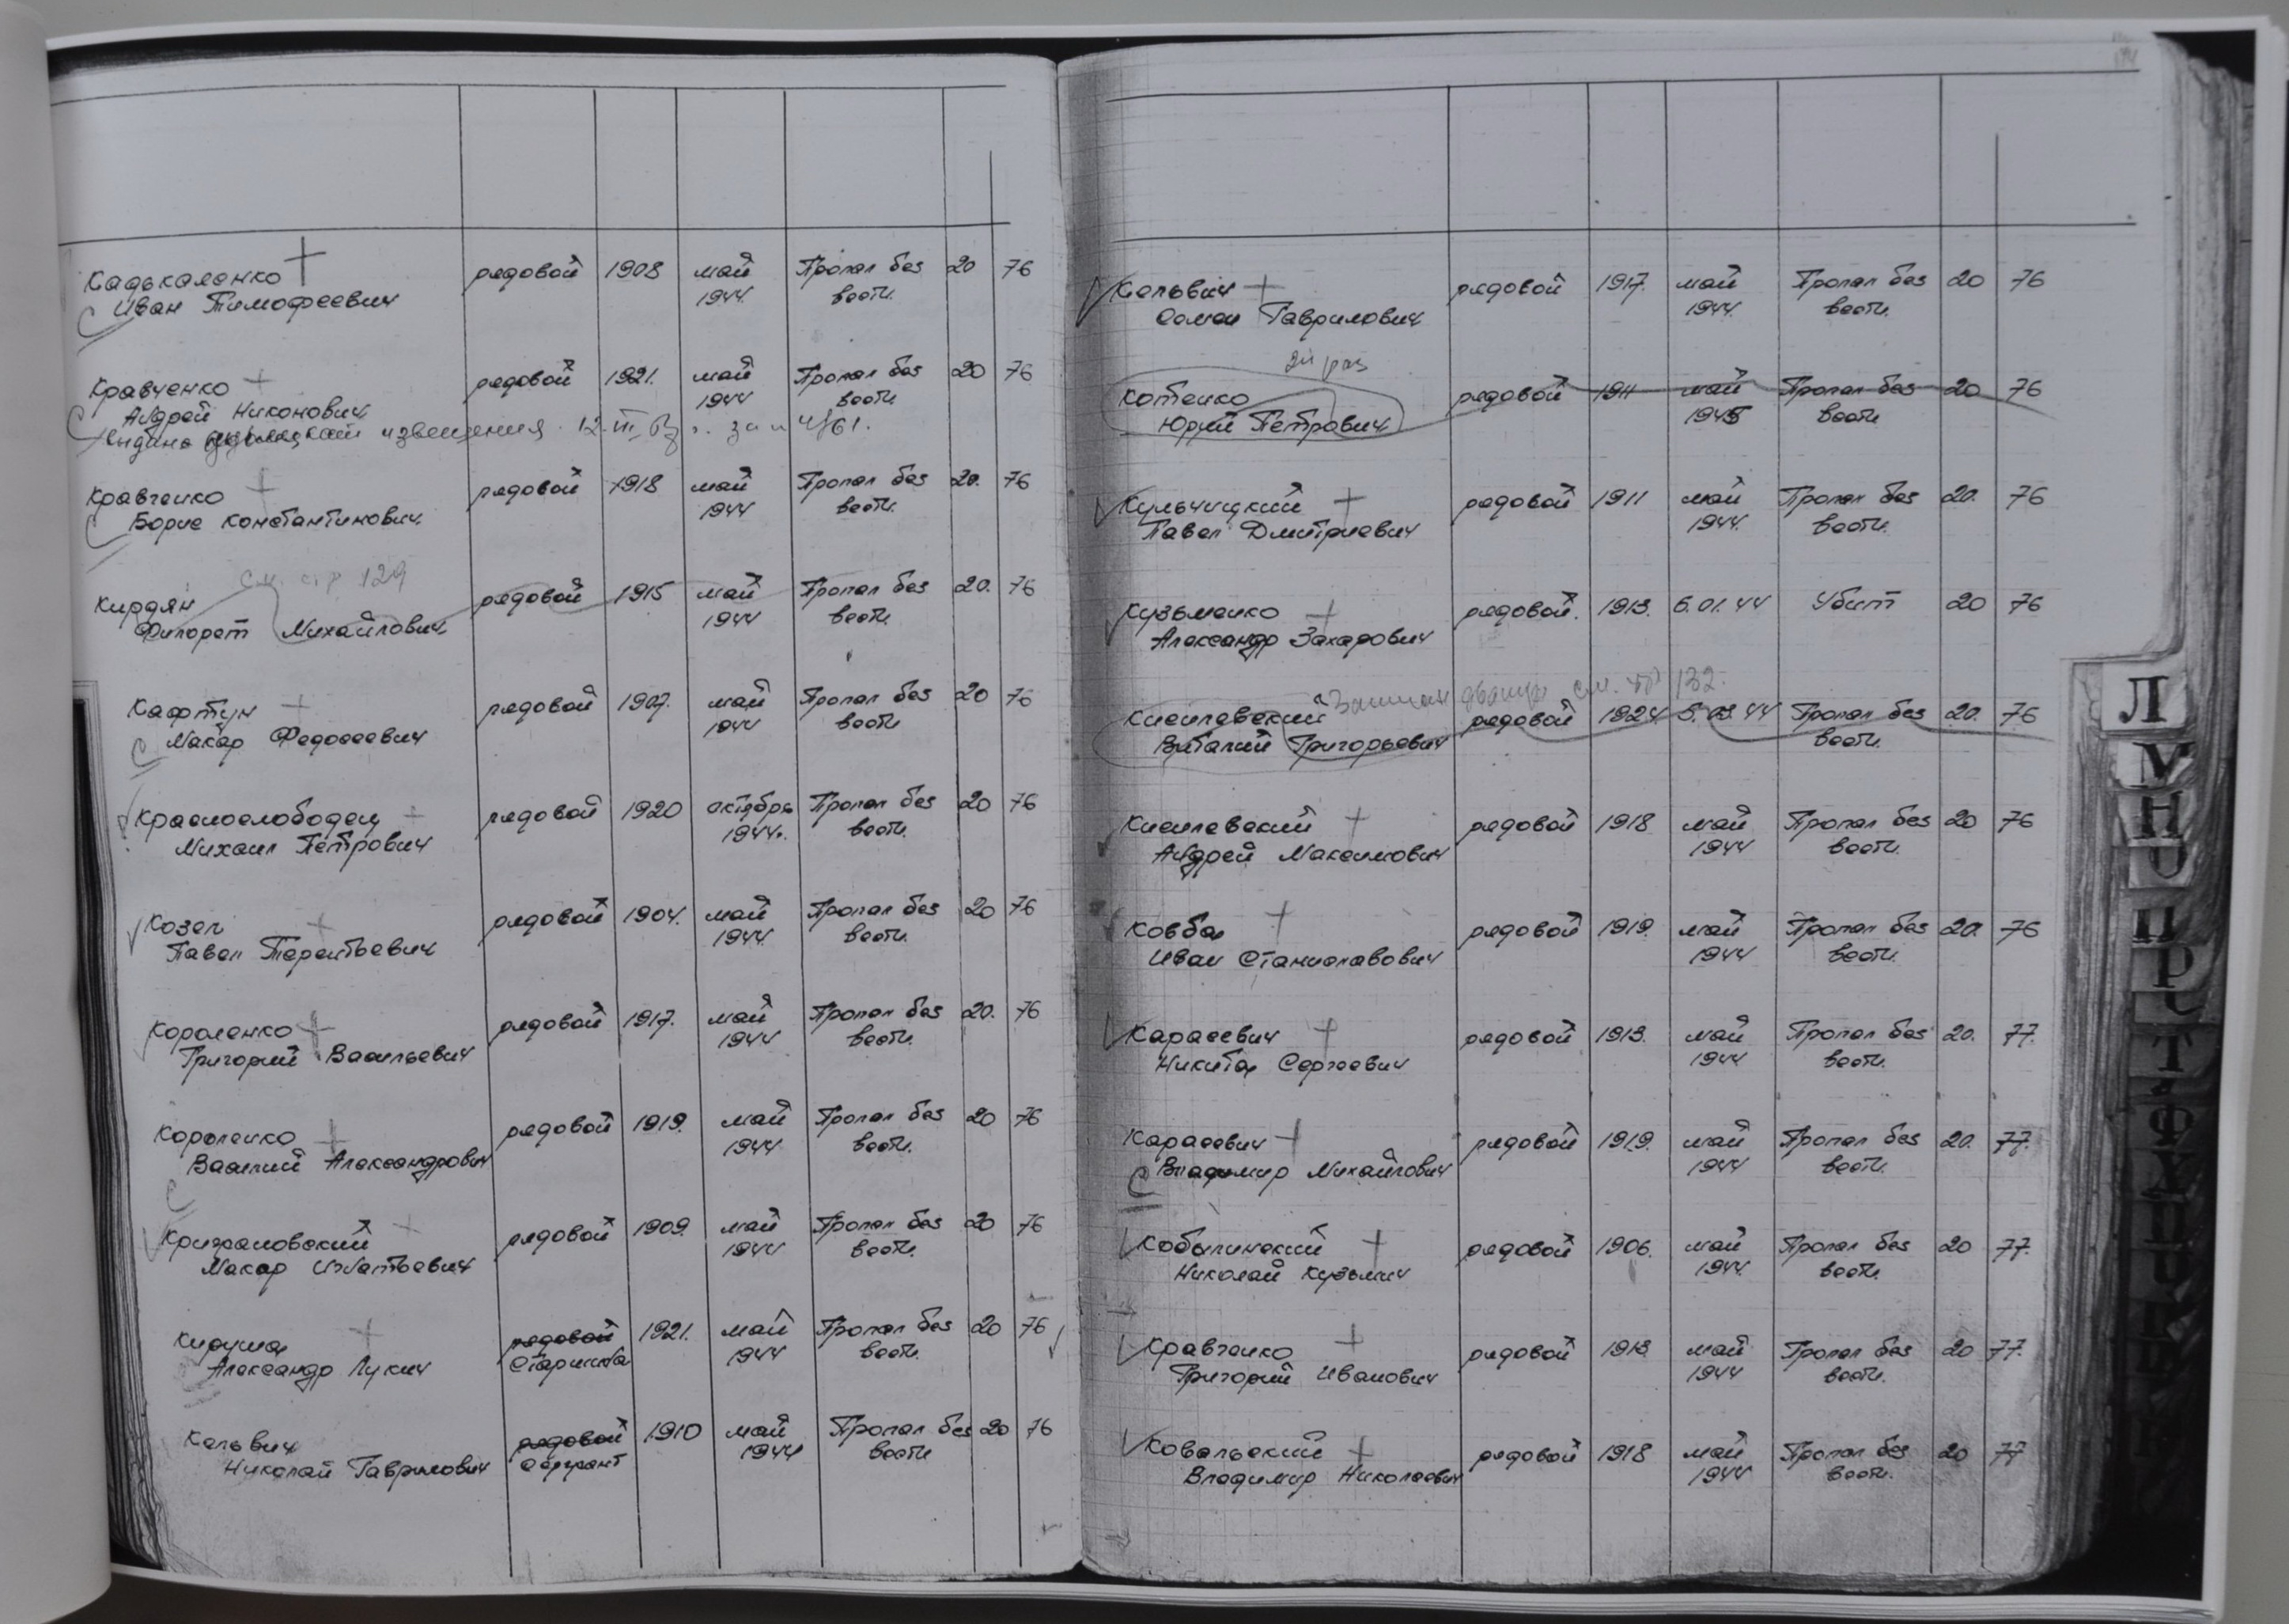 Кадькаленко рядовой 1908 май Пропал без 20 76
Иван Тимофеевич 1944 вести.
Кравченко рядовой 1921. май Пропал без 20 76
Андрей Никонович 1944 вести
извещения 12.III
Кравченко рядовой 1918 май Пропал без 20. 76
Борис Константинович 1944 вести.
см. стр 129
Кирдян рядовой 1915 май Пропал без 20. 76
Филорет Михайлович 1944 вести.
Кафтун рядовой 1907. май Пропал без 20 76
Макар Федосеевич 1944 вести
Краснослободец рядовой 1920 октябрь Пропал без 20 76
Михаил Петрович 1944г. вести.
Козел рядовой 1904. май Пропал без 20 76
Павел Терентьевич 1944. вести.
Короленко рядовой 1917. май Пропал без 20. 76
Григорий Васильевич 1944 вести.
Короленко рядовой 1919. май Пропал без 20 76
Василий Александрович 1944 вести.
рядовой 1909. май Пропал без 20 76
Макар Игнатьевич 1944 вести.
рядовой 1921. май Пропал без 20 76
Александр Лукич старшина 1944 вести.
Кельвич рядовой 1910 май Пропал без 20 76
Николай Гаврилович сержант 1944 вести
Кельвич рядовой 1917. май Пропал без 20 76
Семен Гаврилович 1944. вести.
2й раз
Котенко рядовой 1911 май Пропал без 20 76
Юрий Петрович 1945 вести
Кульчицкий рядовой 1911 май Пропал без 20. 76
Павел Дмитриевич 1944. вести.
Кузьменко рядовой. 1913. 6.01.44 Убит 20 76
Александр Захарович
Записан дважды см. стр 132.
Кисилевский рядовой 1924 5.03.44 Пропал без 20. 76
Виталий Григорьевич вести.
Кисилевский рядовой 1918 май Пропал без 20 76
Андрей Максимович 1944 вести.
Ковба рядовой 1919. май Пропал без 20. 76
Иван Станиславович 1944 вести.
Карасевич рядовой 1913. май Пропал без 20. 77.
Никита Сергеевич 1944 вести.
Карасевич рядовой 1919. май Пропал без 20. 77.
Владимир Михайлович 1944 вести.
Кобылинский рядовой 1906. май Пропал без 20 77.
Николай Кузьмич 1944. вести.
Кравченко рядовой 1913. май Пропал без 20 77.
Григорий Иванович 1944 вести.
Ковальский рядовой 1918 май Пропал без 20 77
Владимир Николаевич 1944 вести.
Л
М
Н
О
П
Р
С
Т